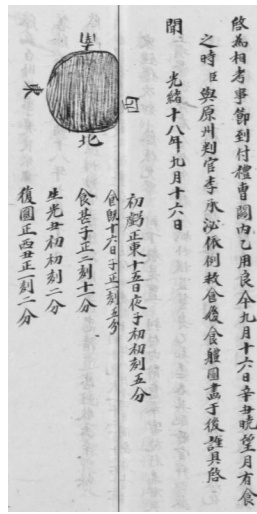 啓爲相考事節到付禮曹關內乙用良今九月十六日辛丑曉望月有食
之時臣與原州判官李承泌依例救食後食體圖畫于後謹具啓
聞
光緖十八年九月十六日
南
東
西
北
初虧正東十五日夜子初初刻五分
食旣十六日子正一刻五分
食甚子正二刻十一分
生光丑初初刻二分
復圓正西丑正一刻二分